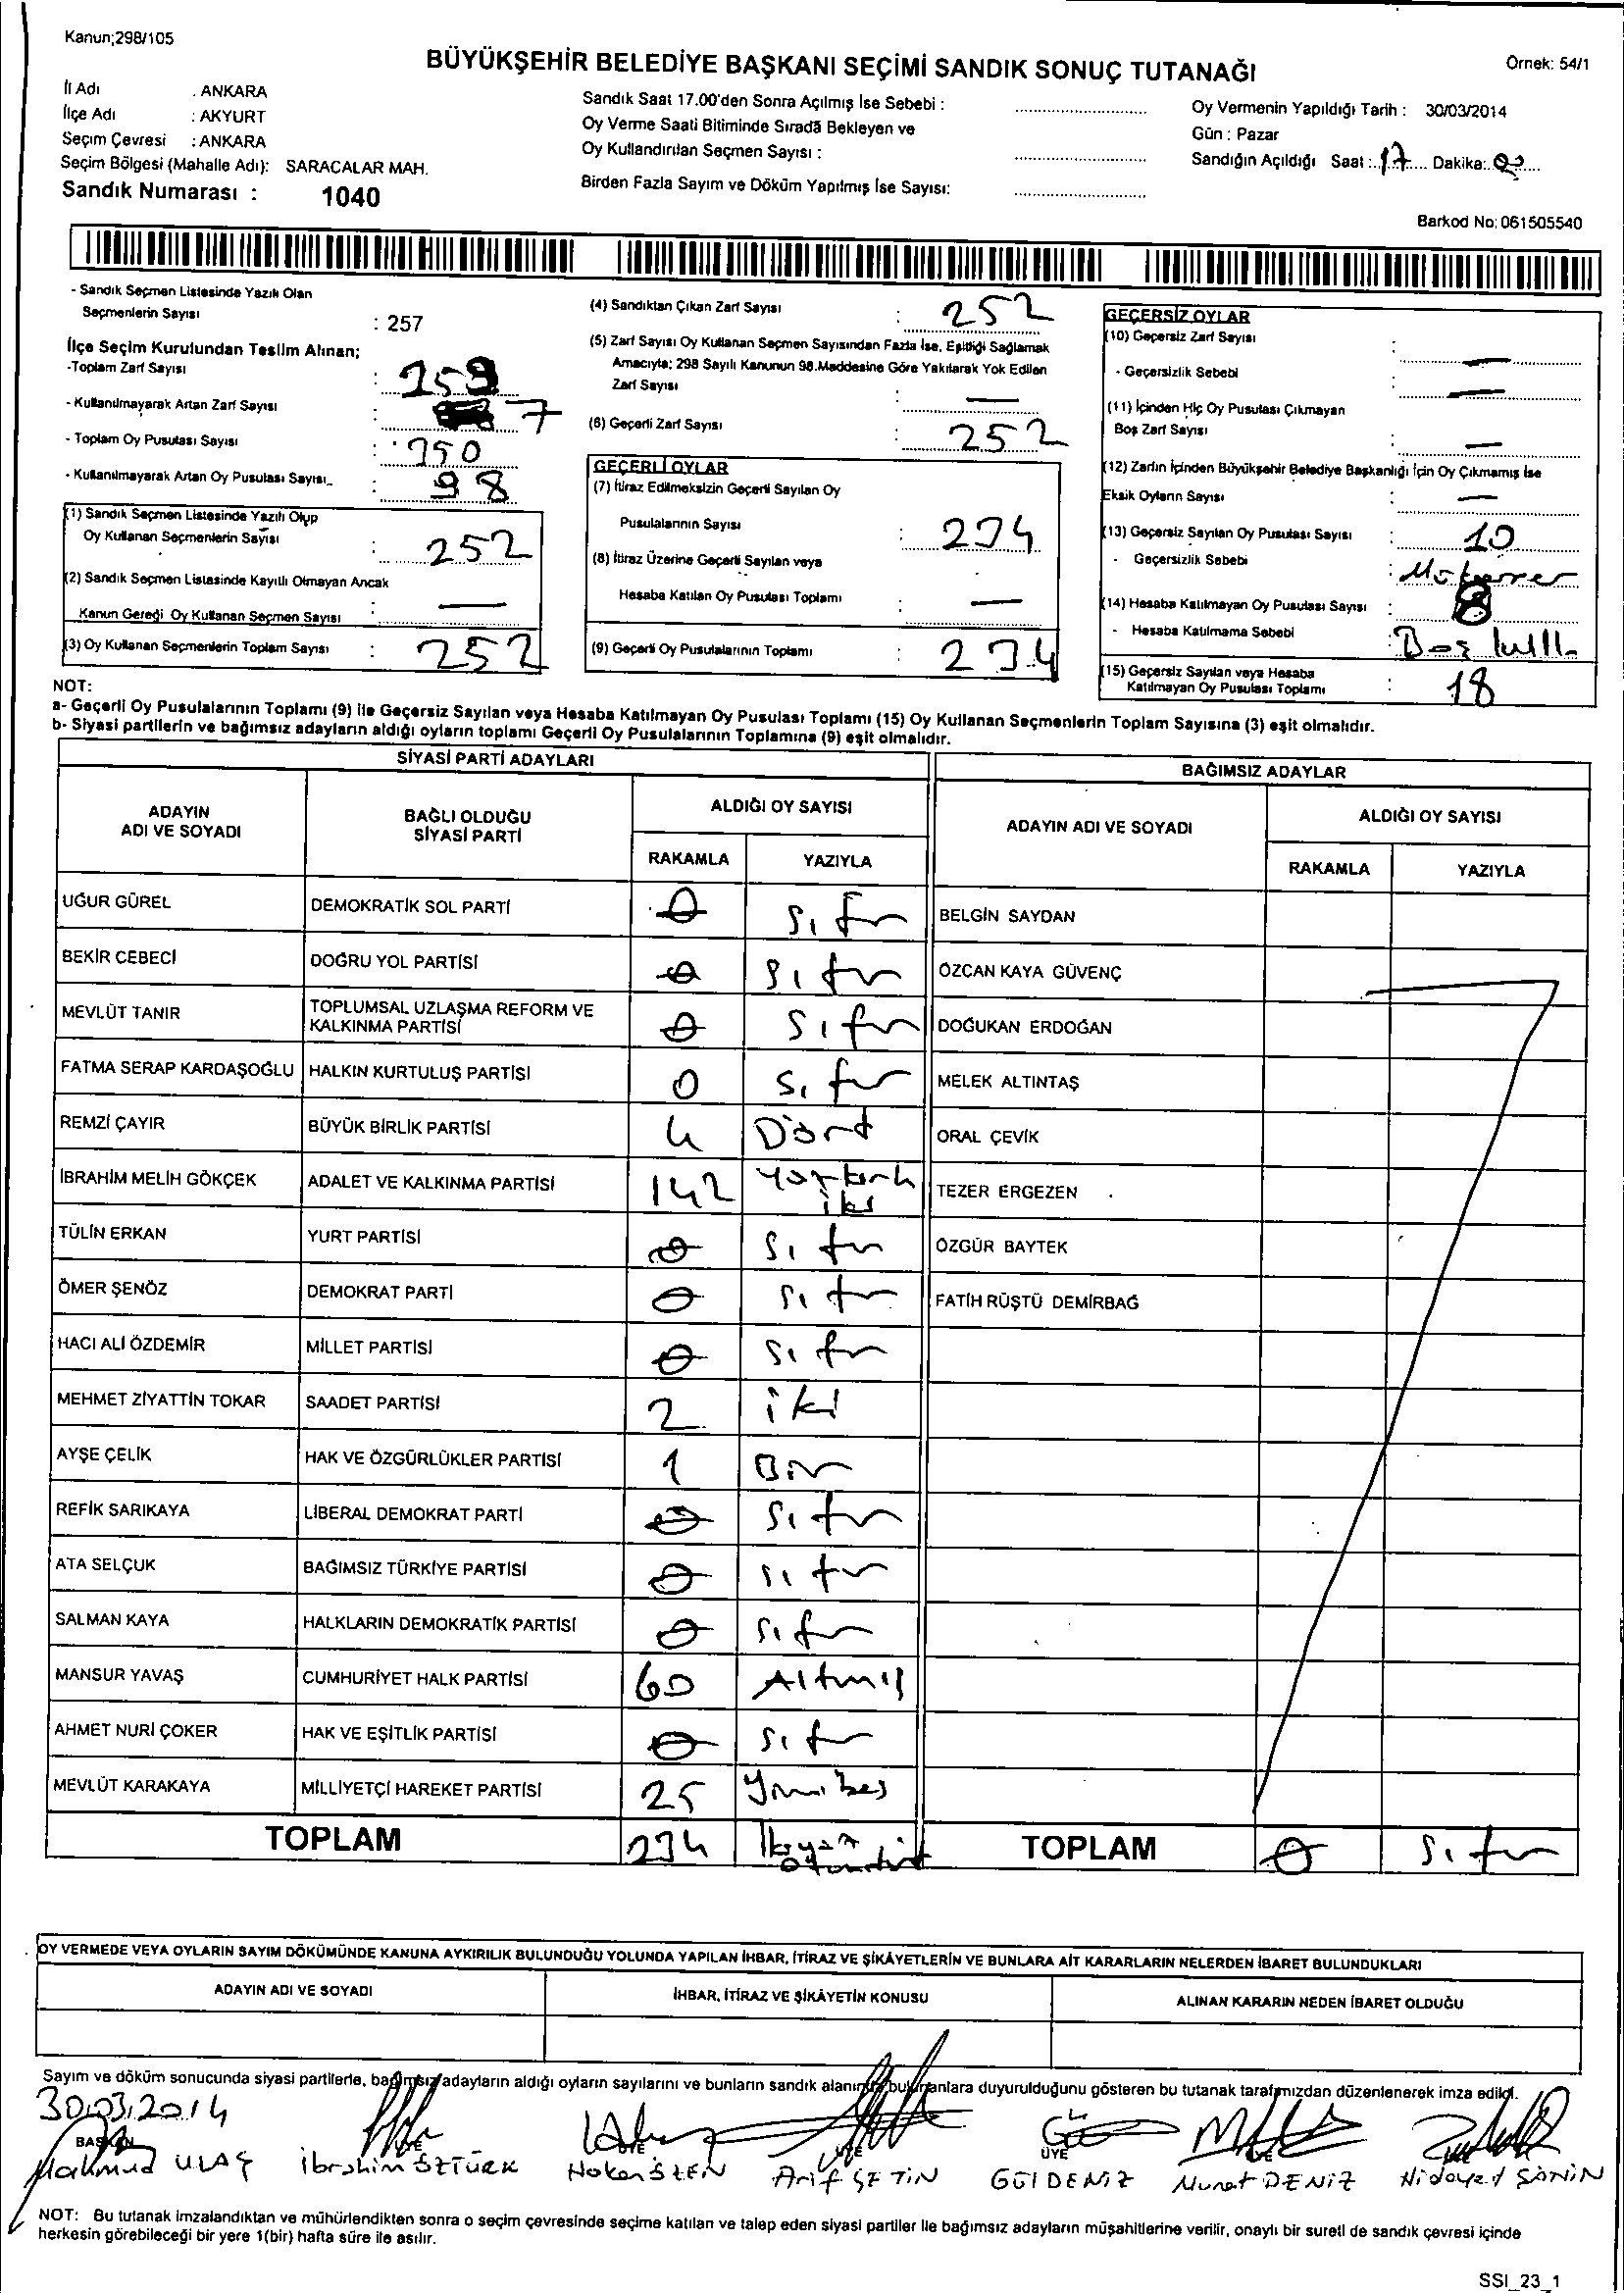 Kanun;298/105
BÜYÜKŞEHİR BELEDİYE BAŞKANI SEÇİMİ SANDIK SONUÇ TUTANAĞI
Örnek: 54/1
İl Adı : ANKARA
İlçe Adı : AKYURT
Seçim Çevresi : ANKARA
Seçim Bölgesi (Mahalle Adı): SARACALAR MAH.
Sandık Numarası : 1040
Sandık Saat 17.00'den Sonra Açılmış İse Sebebi :
Oy Verme Saati Bitiminde Sırada Bekleyen ve
Oy Kullandırılan Seçmen Sayısı :
Birden Fazla Sayım ve Döküm Yapılmış İse Sayısı:
Oy Vermenin Yapıldığı Tarih : 30/03/2014
Gün : Pazar
Sandığın Açıldığı Saat : 17 Dakika:
Barkod No: 061505540
- Sandık Seçmen Listesinde Yazılı Olan
Seçmenlerin Sayısı : 257
İlçe Seçim Kurulundan Teslim Alınan;
-Toplam Zarf Sayısı :
- Kullanılmayarak Artan Zarf Sayısı : 7
- Toplam Oy Pusulası Sayısı : 350
- Kullanılmayarak Artan Oy Pusulası Sayısı : 98
(1) Sandık Seçmen Listesinde Yazılı Olup
Oy Kullanan Seçmenlerin Sayısı : 252
(2) Sandık Seçmen Listesinde Kayıtlı Olmayan Ancak
Kanun Gereği Oy Kullanan Seçmen Sayısı : —
(3) Oy Kullanan Seçmenlerin Toplam Sayısı : 252
(4) Sandıktan Çıkan Zarf Sayısı : 252
(5) Zarf Sayısı Oy Kullanan Seçmen Sayısından Fazla İse, Eşitliği Sağlamak
Amacıyla; 298 Sayılı Kanunun 98.Maddesine Göre Yakılarak Yok Edilen
Zarf Sayısı : —
(6) Geçerli Zarf Sayısı : 252
GEÇERLİ OYLAR
(7) İtiraz Edilmeksizin Geçerli Sayılan Oy
Pusulalarının Sayısı : 234
(8) İtiraz Üzerine Geçerli Sayılan veya
Hesaba Katılan Oy Pusulası Toplamı : —
(9) Geçerli Oy Pusulalarının Toplamı : 234
GEÇERSİZ OYLAR
(10) Geçersiz Zarf Sayısı : —
- Geçersizlik Sebebi : —
(11) İçinden Hiç Oy Pusulası Çıkmayan
Boş Zarf Sayısı : —
(12) Zarfın İçinden Büyükşehir Belediye Başkanlığı İçin Oy Çıkmamış İse
Eksik Oyların Sayısı : —
(13) Geçersiz Sayılan Oy Pusulası Sayısı : 10
- Geçersizlik Sebebi :
(14) Hesaba Katılmayan Oy Pusulası Sayısı : 8
- Hesaba Katılmama Sebebi : Boş
(15) Geçersiz Sayılan veya Hesaba
Katılmayan Oy Pusulası Toplamı : 18
NOT:
a- Geçerli Oy Pusulalarının Toplamı (9) ile Geçersiz Sayılan veya Hesaba Katılmayan Oy Pusulası Toplamı (15) Oy Kullanan Seçmenlerin Toplam Sayısına (3) eşit olmalıdır.
b- Siyasi partilerin ve bağımsız adayların aldığı oyların toplamı Geçerli Oy Pusulalarının Toplamına (9) eşit olmalıdır.
SİYASİ PARTİ ADAYLARI
ADAYIN ADI VE SOYADI BAĞLI OLDUĞU SİYASİ PARTİ ALDIĞI OY SAYISI
RAKAMLA YAZIYLA
UĞUR GÜREL DEMOKRATİK SOL PARTİ 0 Sıfır
BEKİR CEBECİ DOĞRU YOL PARTİSİ 0 Sıfır
MEVLÜT TANIR TOPLUMSAL UZLAŞMA REFORM VE KALKINMA PARTİSİ 0 Sıfır
FATMA SERAP KARDAŞOĞLU HALKIN KURTULUŞ PARTİSİ 0 Sıfır
REMZİ ÇAYIR BÜYÜK BİRLİK PARTİSİ 4 Dört
İBRAHİM MELİH GÖKÇEK ADALET VE KALKINMA PARTİSİ 142 Yüzkırk iki
TÜLİN ERKAN YURT PARTİSİ 0 Sıfır
ÖMER ŞENÖZ DEMOKRAT PARTİ 0 Sıfır
HACI ALİ ÖZDEMİR MİLLET PARTİSİ 0 Sıfır
MEHMET ZİYATTİN TOKAR SAADET PARTİSİ 2 iki
AYŞE ÇELİK HAK VE ÖZGÜRLÜKLER PARTİSİ 1 Bir
REFİK SARIKAYA LİBERAL DEMOKRAT PARTİ 0 Sıfır
ATA SELÇUK BAĞIMSIZ TÜRKİYE PARTİSİ 0 Sıfır
SALMAN KAYA HALKLARIN DEMOKRATİK PARTİSİ 0 Sıfır
MANSUR YAVAŞ CUMHURİYET HALK PARTİSİ 60 Altmış
AHMET NURİ ÇOKER HAK VE EŞİTLİK PARTİSİ 0 Sıfır
MEVLÜT KARAKAYA MİLLİYETÇİ HAREKET PARTİSİ 25 Yirmibeş
TOPLAM 234 İkiyüz otuzdört
BAĞIMSIZ ADAYLAR
ADAYIN ADI VE SOYADI ALDIĞI OY SAYISI
RAKAMLA YAZIYLA
BELGİN SAYDAN
ÖZCAN KAYA GÜVENÇ
DOĞUKAN ERDOĞAN
MELEK ALTINTAŞ
ORAL ÇEVİK
TEZER ERGEZEN
ÖZGÜR BAYTEK
FATİH RÜŞTÜ DEMİRBAĞ
TOPLAM 0 Sıfır
OY VERMEDE VEYA OYLARIN SAYIM DÖKÜMÜNDE KANUNA AYKIRILIK BULUNDUĞU YOLUNDA YAPILAN İHBAR, İTİRAZ VE ŞİKÂYETLERİN VE BUNLARA AİT KARARLARIN NELERDEN İBARET BULUNDUKLARI
ADAYIN ADI VE SOYADI İHBAR, İTİRAZ VE ŞİKÂYETİN KONUSU ALINAN KARARIN NEDEN İBARET OLDUĞU
Sayım ve döküm sonucunda siyasi partilerle, bağımsız adayların aldığı oyların sayılarını ve bunların sandık alanında bulunanlara duyurulduğunu gösteren bu tutanak tarafımızdan düzenlenerek imza edildi.
30.03.2014
BAŞKAN ÜYE ÜYE ÜYE ÜYE ÜYE
Mahmud ULAŞ İbrahim ÖZTÜRK Hakan ÖZEN Arif ÇETİN GÜL DENİZ Murat DENİZ Hidayet ŞAHİN
NOT: Bu tutanak imzalandıktan ve mühürlendikten sonra o seçim çevresinde seçime katılan ve talep eden siyasi partiler ile bağımsız adayların müşahitlerine verilir, onaylı bir sureti de sandık çevresi içinde
herkesin görebileceği bir yere 1(bir) hafta süre ile asılır.
SSI_23_1